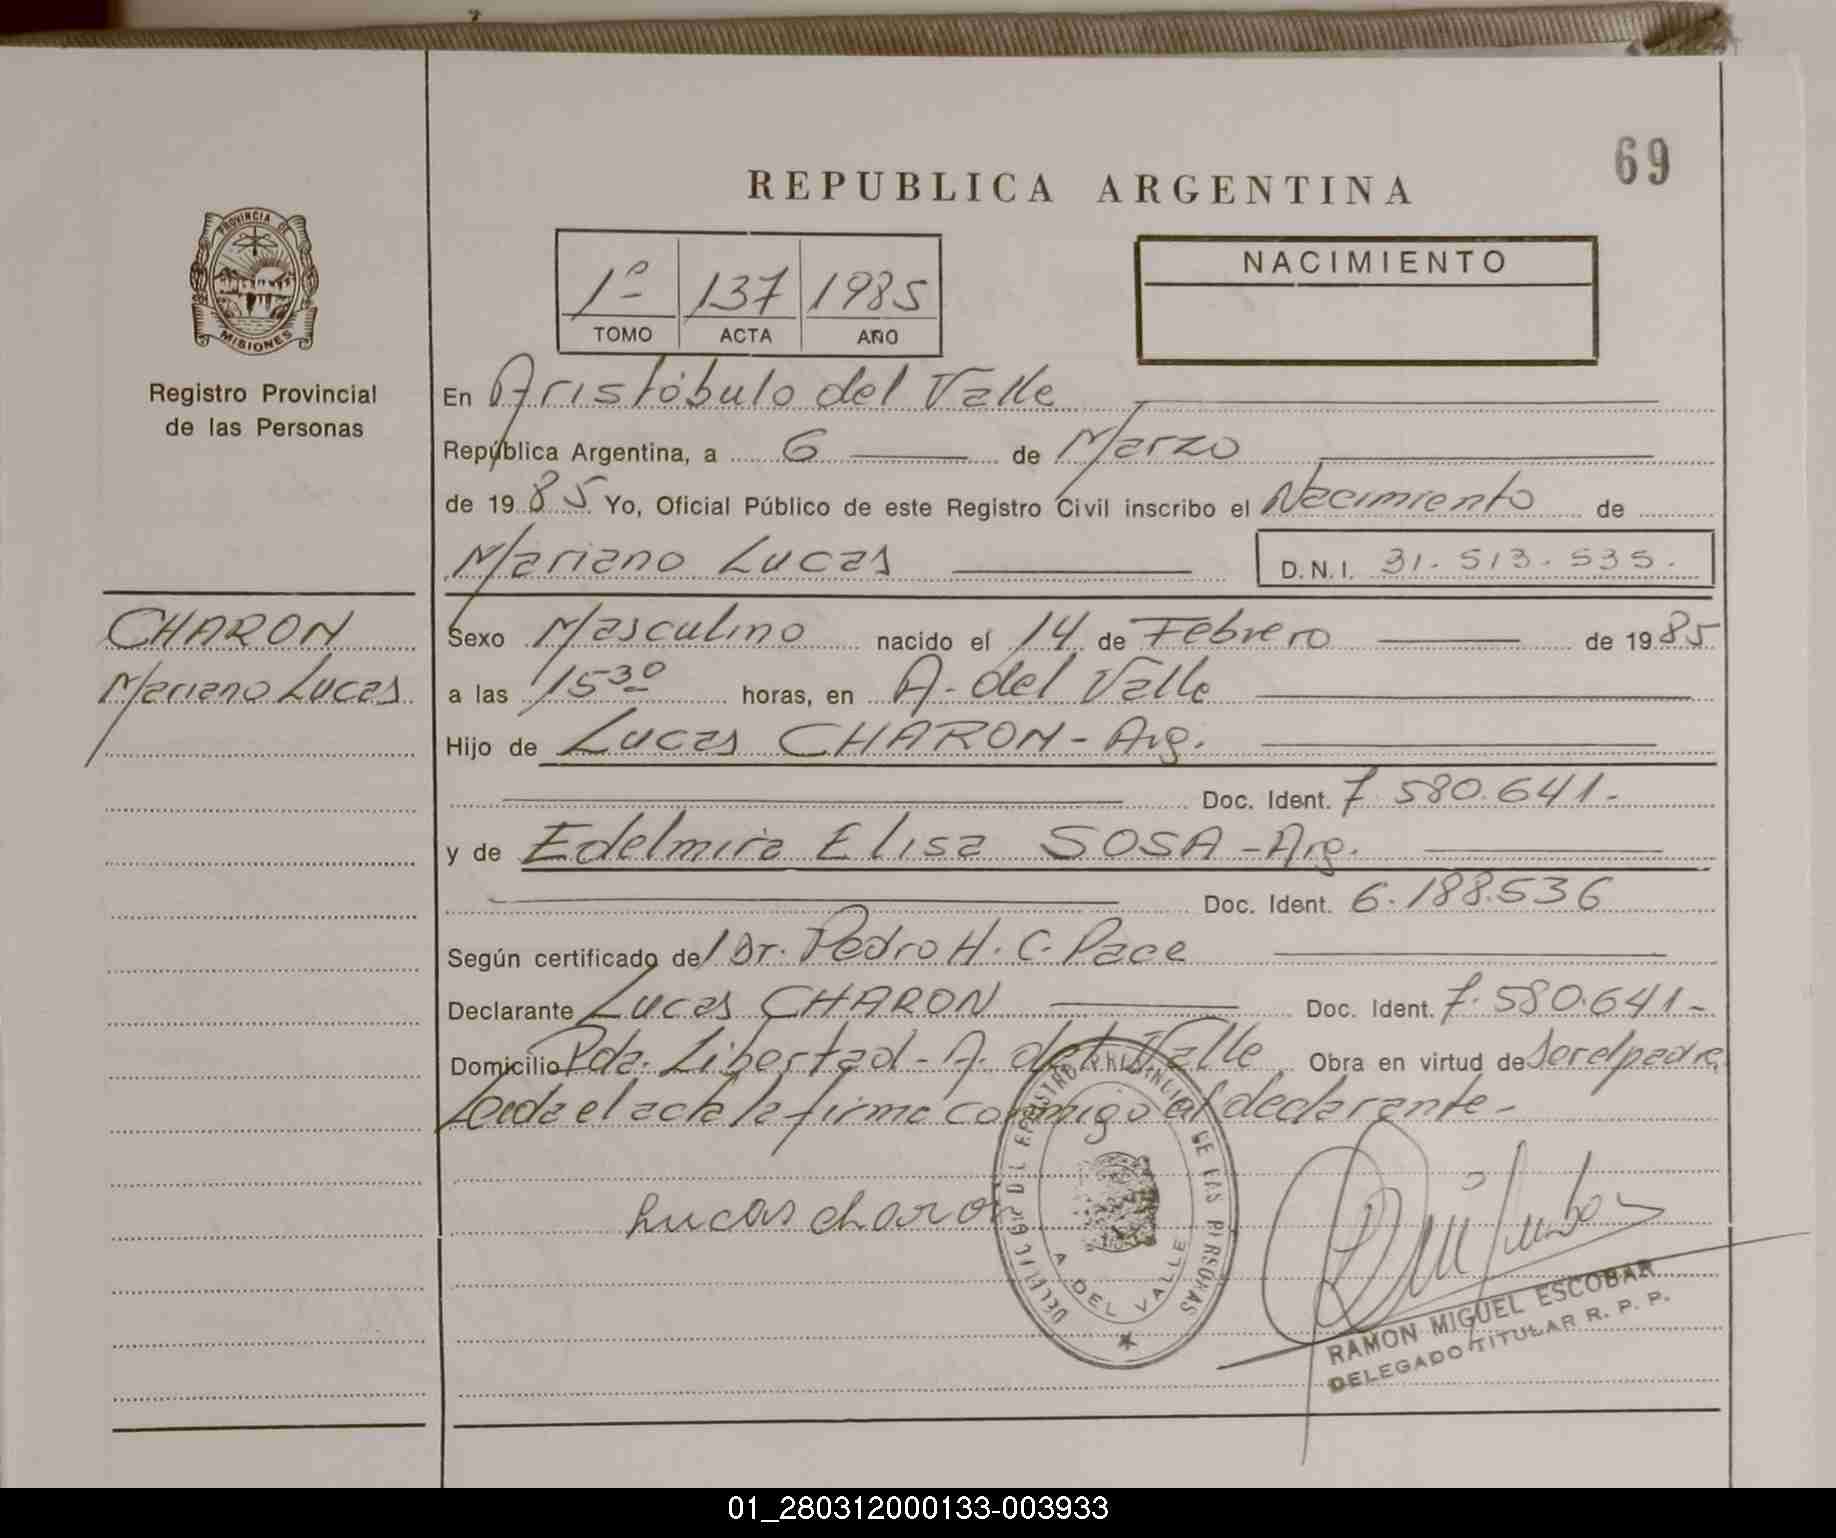 69
REPUBLICA ARGENTINA
PROVINCIA DE
MISIONES
Registro Provincial
de las Personas
1º 137 1985
TOMO ACTA AÑO
NACIMIENTO
En Aristóbulo del Valle
República Argentina, a 6 de Marzo
de 1985 Yo, Oficial Público de este Registro Civil inscribo el Nacimiento de
Mariano Lucas D.N.I. 31.513.535.
CHARON
Mariano Lucas
Sexo Masculino nacido el 14 de Febrero de 1985
a las 15³⁰ horas, en A. del Valle
Hijo de Lucas CHARON - Arg.
Doc. Ident. 7.580.641.-
y de Edelmira Elisa SOSA - Arg.
Doc. Ident. 6.188.536
Según certificado del Dr. Pedro H. C. Pace
Declarante Lucas CHARON Doc. Ident. 7.580.641-
Domicilio Pda. Libertad - A. del Valle Obra en virtud de Ser el padre
Leida el acta la firma conmigo el declarante-
Lucas charon
DELEGACION DEL REGISTRO PROVINCIAL DE LAS PERSONAS
A. DEL VALLE
RAMON MIGUEL ESCOBAR
DELEGADO TITULAR R. P. P.
01_280312000133-003933